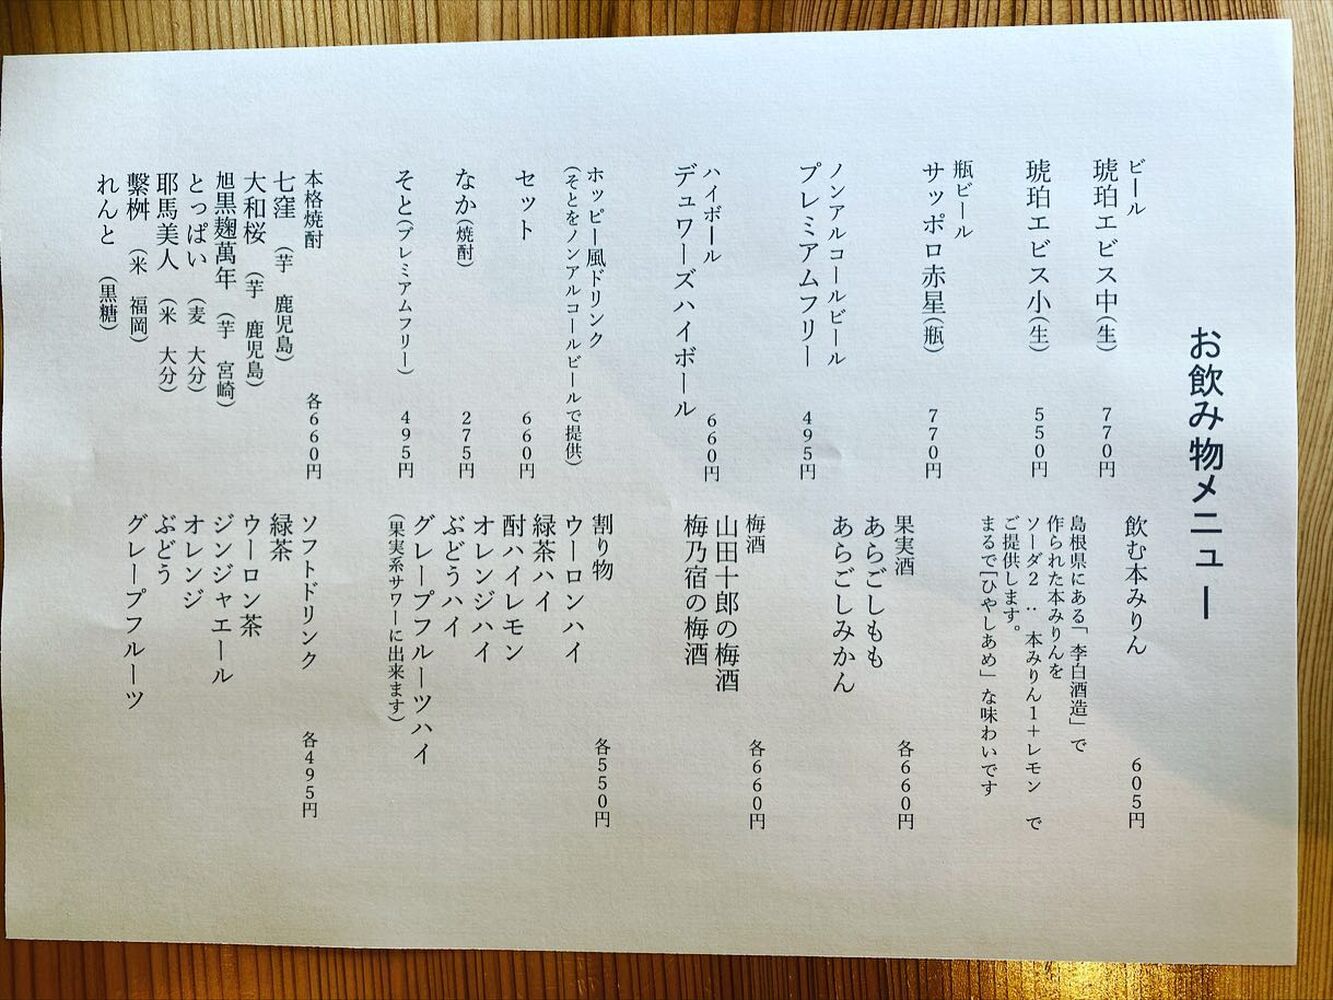 お飲み物メニュー
ビール
琥珀ヱビス中(生) 770円
琥珀ヱビス小(生) 550円
瓶ビール
サッポロ赤星(瓶) 770円
ノンアルコールビール
プレミアムフリー 495円
ハイボール
デュワーズハイボール 660円
ホッピー風ドリンク
(そとをノンアルコールビールで提供)
セット 660円
なか(焼酎) 275円
そと(プレミアムフリー) 495円
本格焼酎 各660円
七窪 (芋 鹿児島)
大和桜 (芋 鹿児島)
旭黒麹萬年 (芋 宮崎)
とっぱい (麦 大分)
耶馬美人 (米 大分)
繫桝 (米 福岡)
れんと (黒糖)
飲む本みりん 605円
島根県にある「李白酒造」で
作られた本みりんを
ソーダ2:本みりん1+レモン で
ご提供します。
まるで「ひやしあめ」な味わいです
果実酒 各660円
あらごしもも
あらごしみかん
梅酒 各660円
山田十郎の梅酒
梅乃宿の梅酒
割り物 各550円
ウーロンハイ
緑茶ハイ
酎ハイレモン
オレンジハイ
ぶどうハイ
グレープフルーツハイ
(果実系サワーに出来ます)
ソフトドリンク 各495円
緑茶
ウーロン茶
ジンジャエール
オレンジ
ぶどう
グレープフルーツ